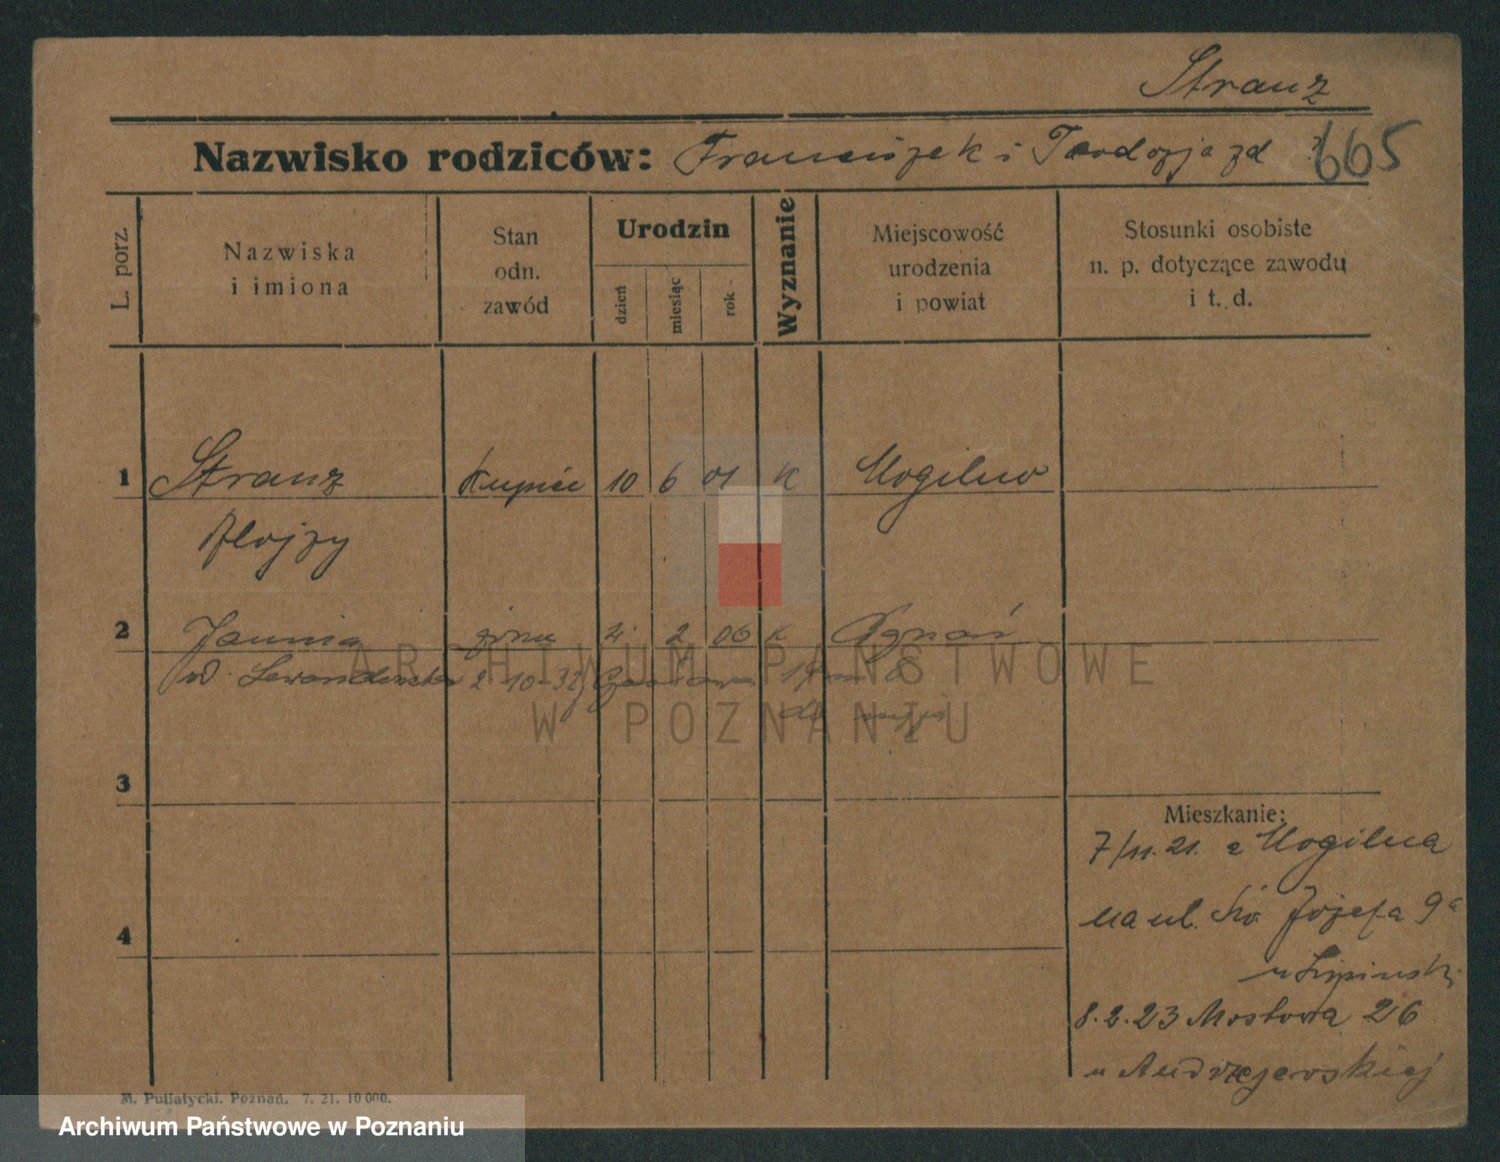 Stranz
Nazwisko rodziców: Franciszek i Teodozja zd 665
L. porz.
Nazwiska
i imiona
Stan
odn.
zawód
Urodzin
dzień
miesiąc
rok
Wyznanie
Miejscowość
urodzenia
i powiat
Stosunki osobiste
n. p. dotyczące zawodu
i t. d.
1 Stranz Kupiec 10 6 01 K Mogilno
Alojzy
2 Janina żona 4. 2 06 K Poznań
zd. Lewandowska 2 10-32
3
4
Mieszkanie:
7/11.21. z Mogilna
na ul. Św. Józefa 9a
u Lipinski
8.2.23 Mostowa 26
u Andrzejewskiej
M. Putiatycki. Poznań. 7. 21. 10 000.
ARCHIWUM PAŃSTWOWE
W POZNANIU
Archiwum Państwowe w Poznaniu